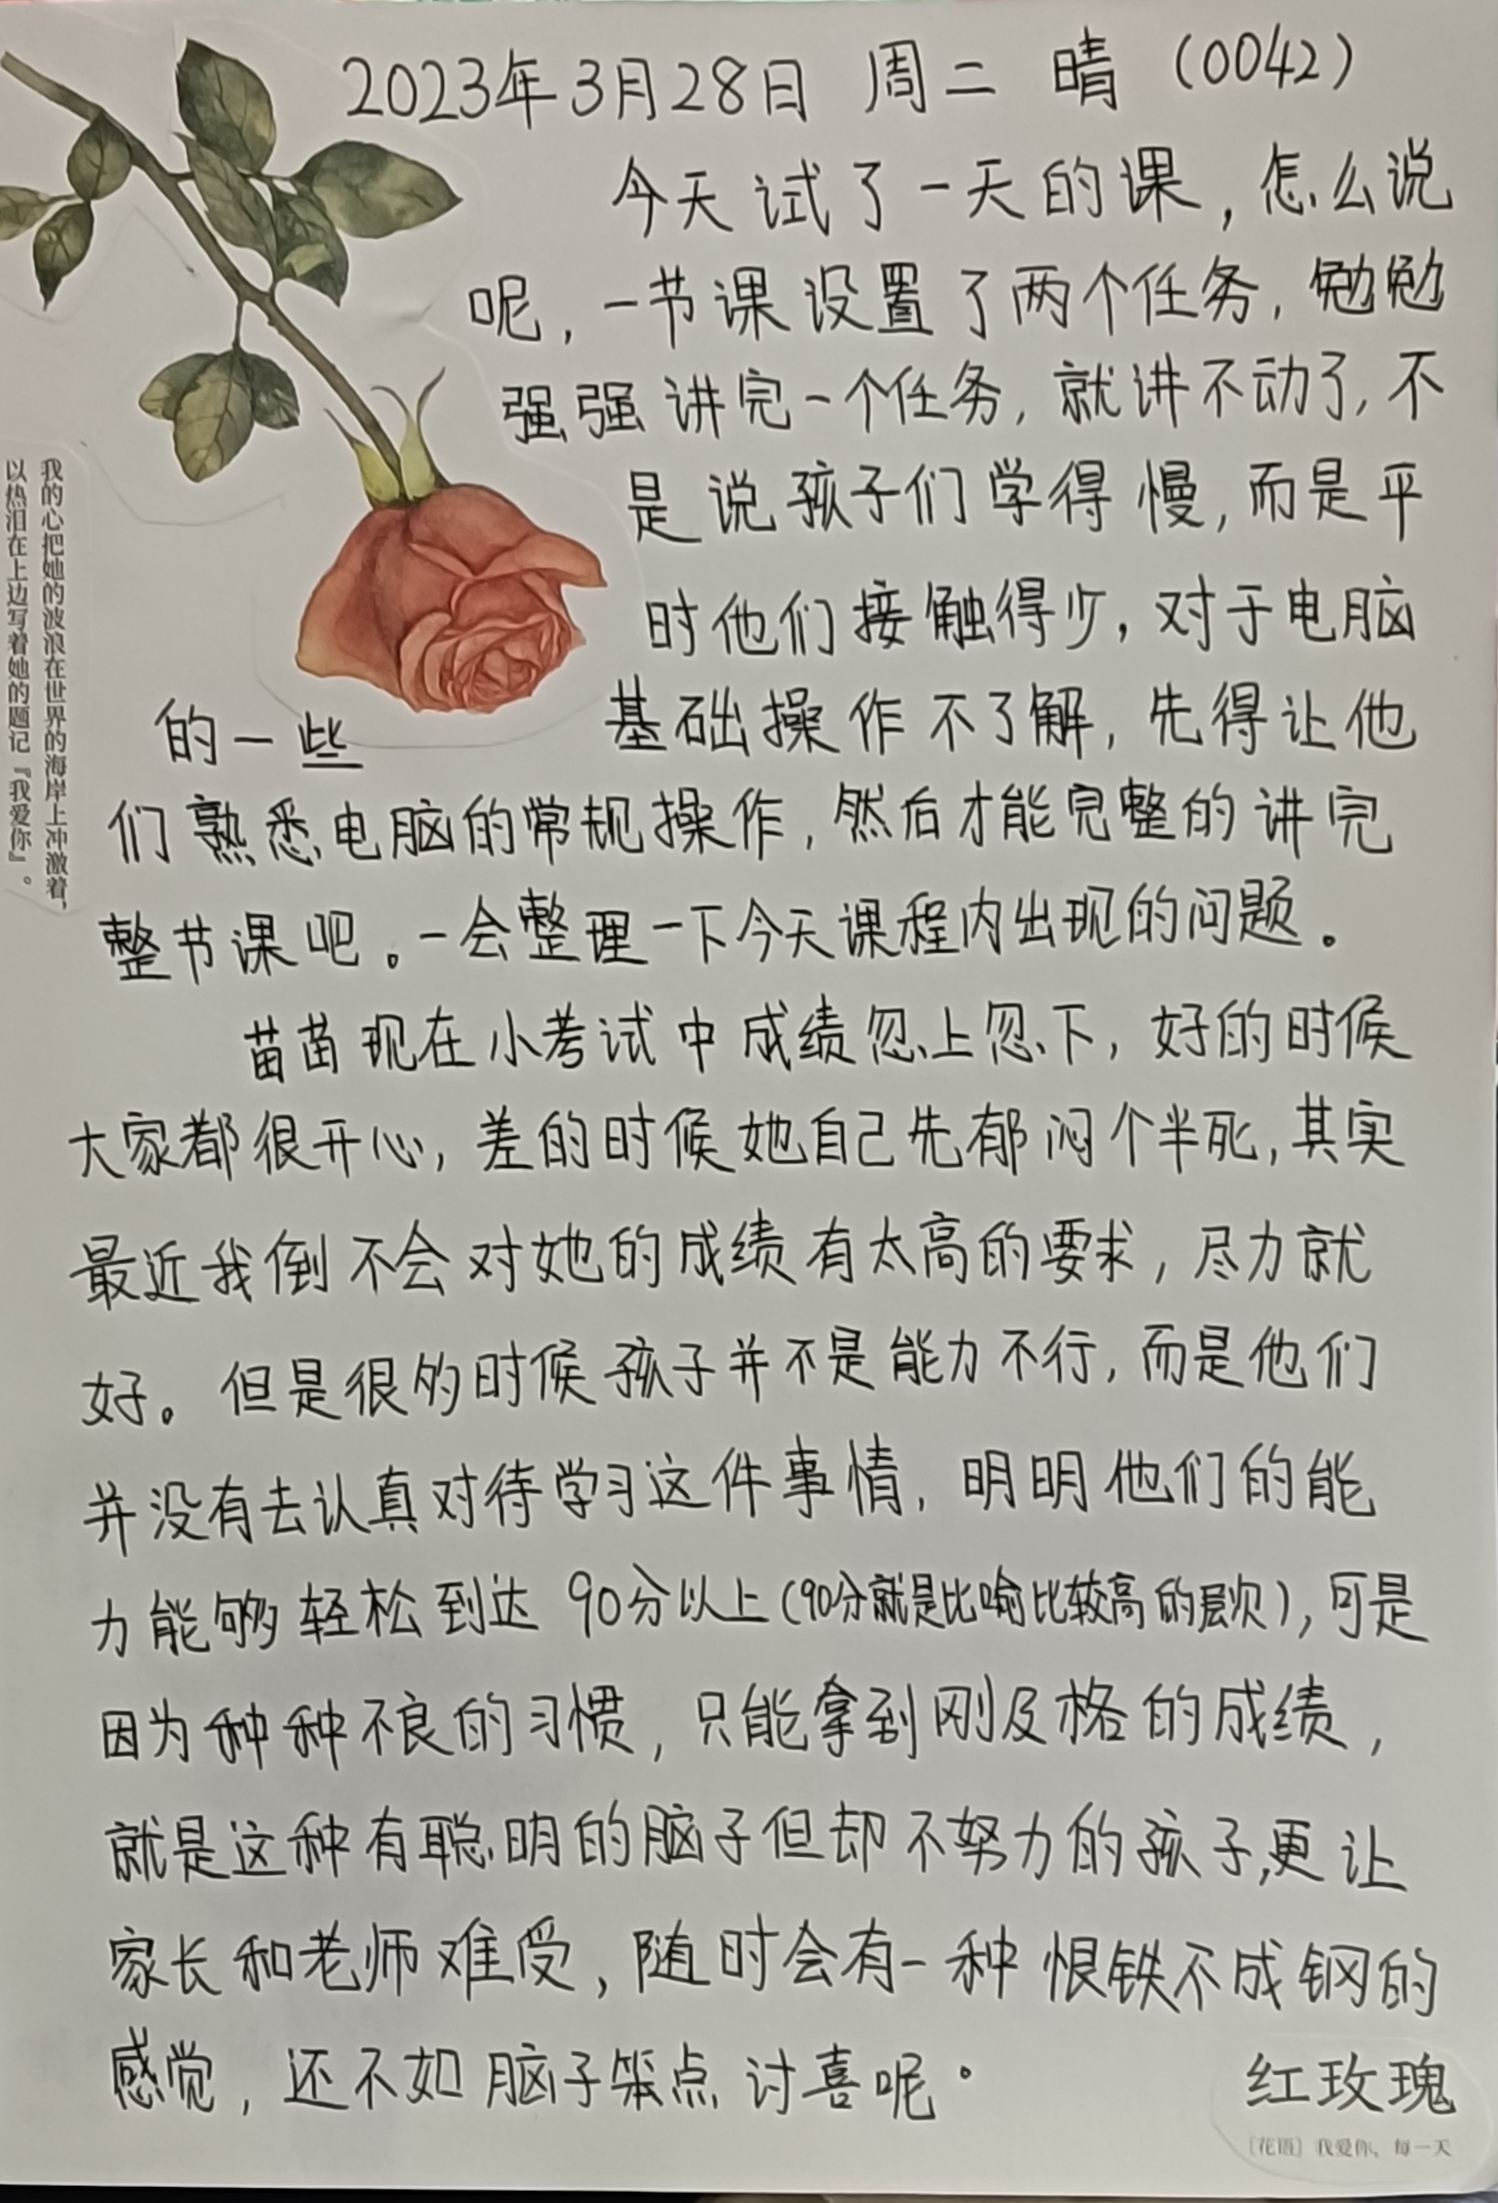 2023年3月28日 周二 晴 (0042)
今天试了一天的课，怎么说
呢，一节课设置了两个任务，勉勉
强强讲完一个任务，就讲不动了，不
是说孩子们学得慢，而是平
时他们接触得少，对于电脑
的一些 基础操作不了解，先得让他
们熟悉电脑的常规操作，然后才能完整的讲完
整节课吧。一会整理一下今天课程内出现的问题。
苗苗现在小考试中成绩忽上忽下，好的时候
大家都很开心，差的时候她自己先郁闷个半死，其实
最近我倒不会对她的成绩有太高的要求，尽力就
好。但是很多时候孩子并不是能力不行，而是他们
并没有去认真对待学习这件事情，明明他们的能
力能够轻松到达90分以上(90分就是比喻比较高的层次)，可是
因为种种不良的习惯，只能拿到刚及格的成绩，
就是这种有聪明的脑子但却不努力的孩子，更让
家长和老师难受，随时会有一种恨铁不成钢的
感觉，还不如脑子笨点讨喜呢。
我的心把她的波浪在世界的海岸上冲激着，
以热泪在上边写着她的题记『我爱你』。
红玫瑰
［花语］我爱你，每一天